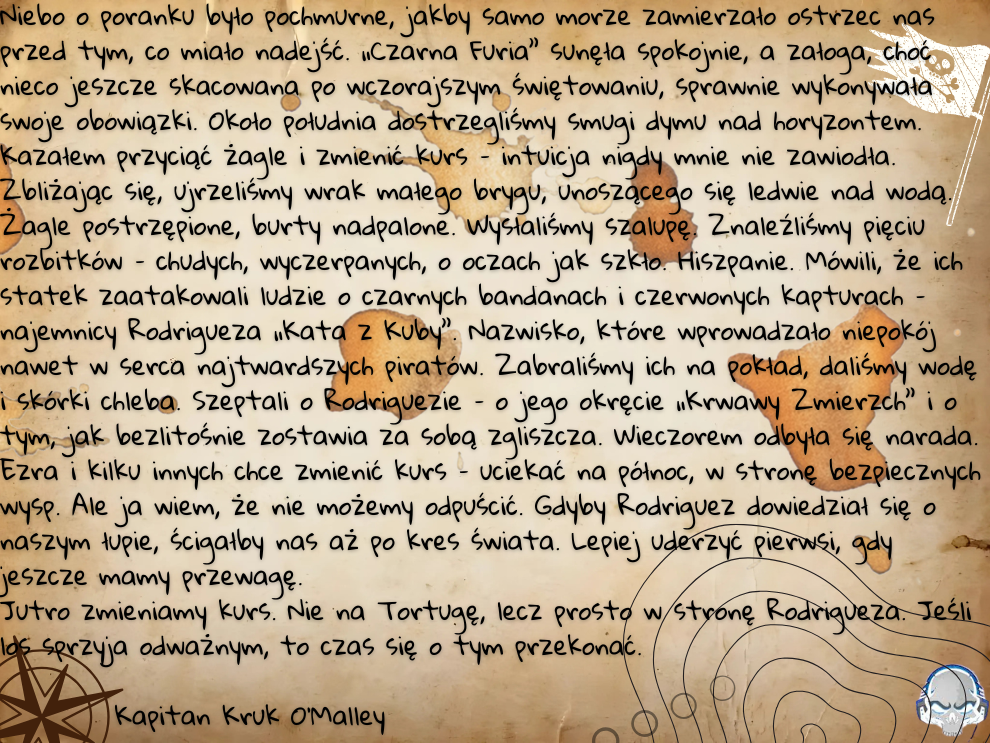 Niebo o poranku było pochmurne, jakby samo morze zamierzało ostrzec nas
przed tym, co miało nadejść. „Czarna Furia” sunęła spokojnie, a załoga, choć
nieco jeszcze skacowana po wczorajszym świętowaniu, sprawnie wykonywała
swoje obowiązki. Około południa dostrzegliśmy smugi dymu nad horyzontem.
Kazałem przyciąć żagle i zmienić kurs - intuicja nigdy mnie nie zawiodła.
Zbliżając się, ujrzeliśmy wrak małego brygu, unoszącego się ledwie nad wodą.
Żagle postrzępione, burty nadpalone. Wysłaliśmy szalupę. Znaleźliśmy pięciu
rozbitków - chudych, wyczerpanych, o oczach jak szkło. Hiszpanie. Mówili, że ich
statek zaatakowali ludzie o czarnych bandanach i czerwonych kapturach -
najemnicy Rodrigueza „Kata z Kuby”. Nazwisko, które wprowadzało niepokój
nawet w serca najtwardszych piratów. Zabraliśmy ich na pokład, daliśmy wodę
i skórki chleba. Szeptali o Rodriguezie - o jego okręcie „Krwawy Zmierzch” i o
tym, jak bezlitośnie zostawia za sobą zgliszcza. Wieczorem odbyła się narada.
Ezra i kilku innych chce zmienić kurs - uciekać na północ, w stronę bezpiecznych
wysp. Ale ja wiem, że nie możemy odpuścić. Gdyby Rodriguez dowiedział się o
naszym łupie, ścigałby nas aż po kres świata. Lepiej uderzyć pierwsi, gdy
jeszcze mamy przewagę.
Jutro zmieniamy kurs. Nie na Tortugę, lecz prosto w stronę Rodrigueza. Jeśli
los sprzyja odważnym, to czas się o tym przekonać.
Kapitan Kruk O'Malley